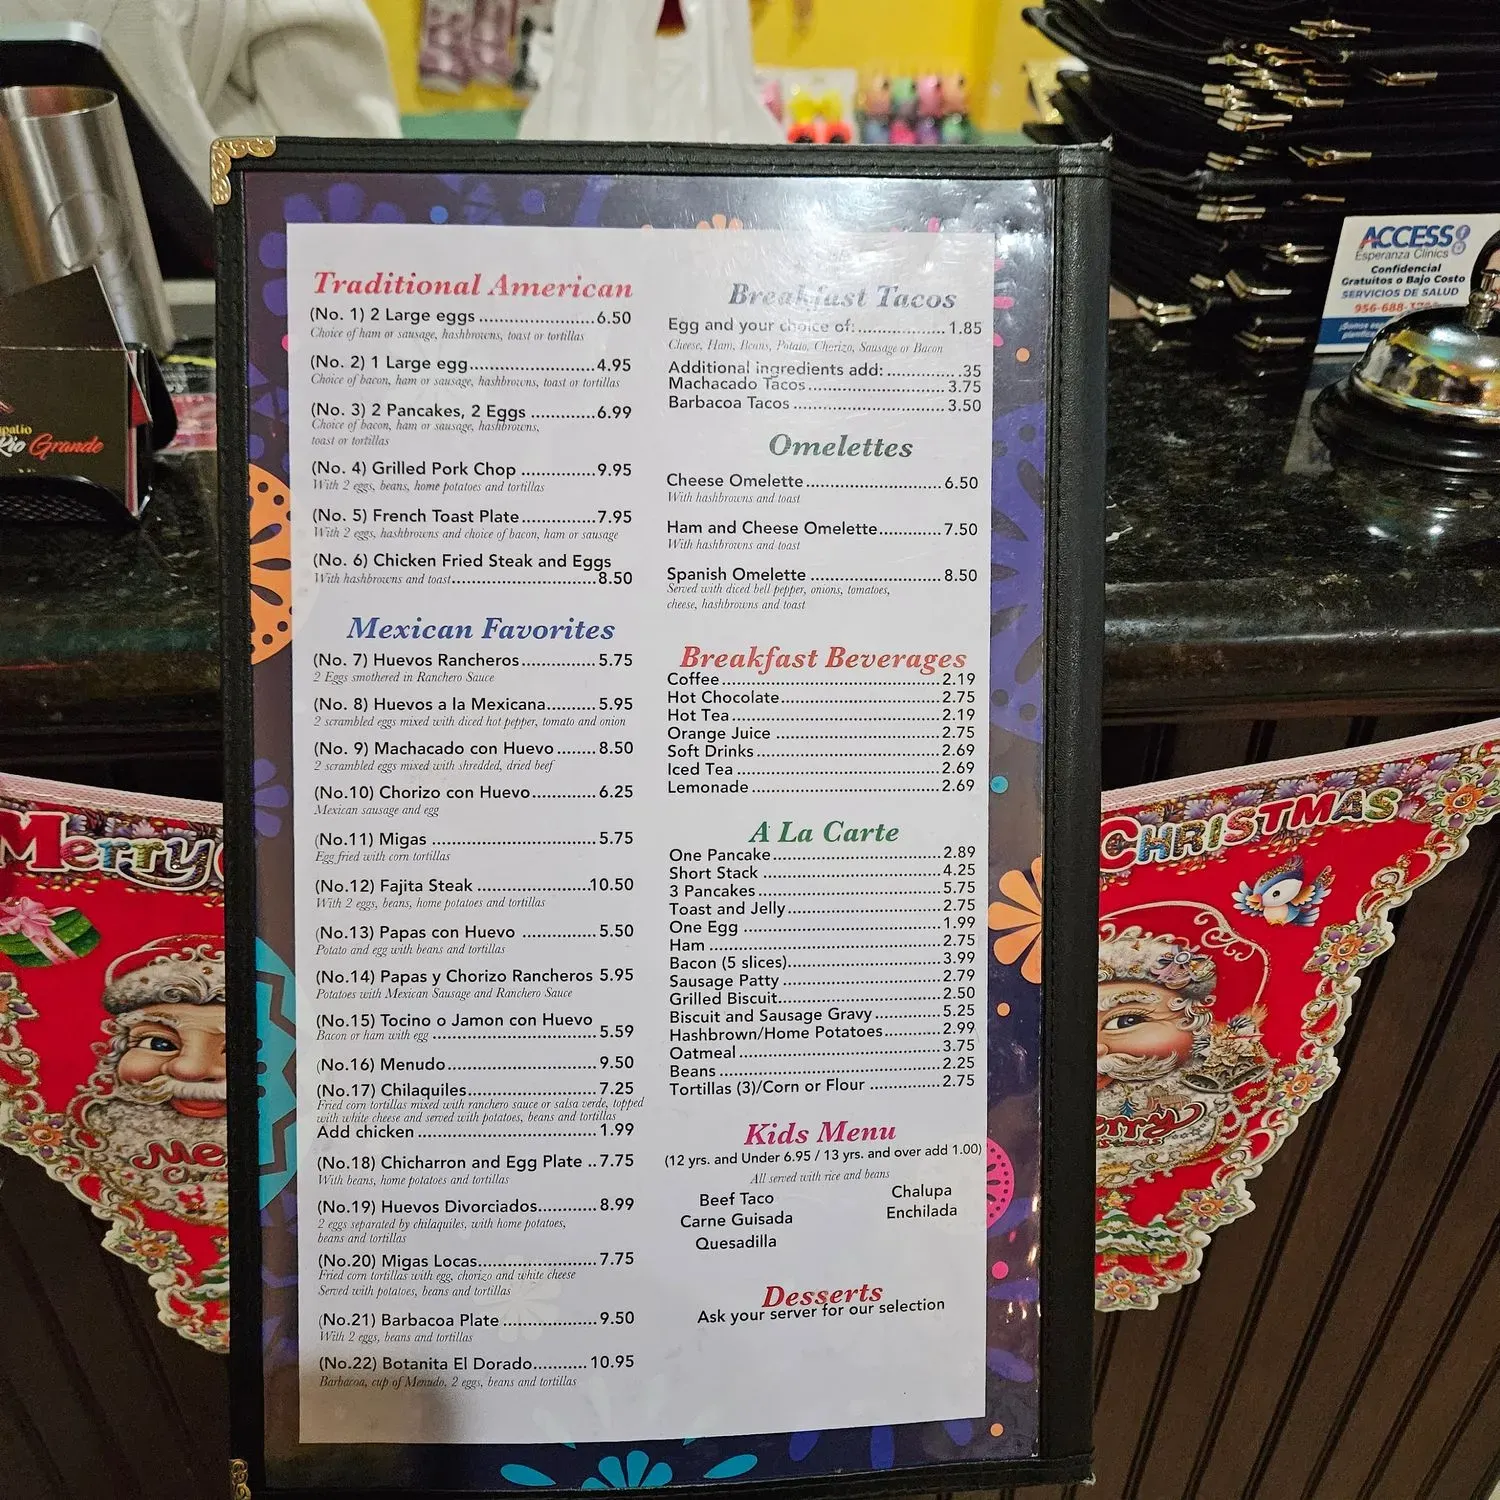 Traditional American
(No. 1) 2 Large eggs ........................6.50
Choice of ham or sausage, hashbrowns, toast or tortillas
(No. 2) 1 Large egg..........................4.95
Choice of bacon, ham or sausage, hashbrowns, toast or tortillas
(No. 3) 2 Pancakes, 2 Eggs .............6.99
Choice of bacon, ham or sausage, hashbrowns,
toast or tortillas
(No. 4) Grilled Pork Chop ...............9.95
With 2 eggs, beans, home potatoes and tortillas
(No. 5) French Toast Plate...............7.95
With 2 eggs, hashbrowns and choice of bacon, ham or sausage
(No. 6) Chicken Fried Steak and Eggs
With hashbrowns and toast.............................8.50
Mexican Favorites
(No. 7) Huevos Rancheros...............5.75
2 Eggs smothered in Ranchero Sauce
(No. 8) Huevos a la Mexicana..........5.95
2 scrambled eggs mixed with diced hot pepper, tomato and onion
(No. 9) Machacado con Huevo ........8.50
2 scrambled eggs mixed with shredded, dried beef
(No.10) Chorizo con Huevo.............6.25
Mexican sausage and egg
(No.11) Migas ...................................5.75
Egg fried with corn tortillas
(No.12) Fajita Steak .......................10.50
With 2 eggs, beans, home potatoes and tortillas
(No.13) Papas con Huevo ...............5.50
Potato and egg with beans and tortillas
(No.14) Papas y Chorizo Rancheros 5.95
Potatoes with Mexican Sausage and Ranchero Sauce
(No.15) Tocino o Jamon con Huevo
Bacon or ham with egg .................................5.59
(No.16) Menudo..............................9.50
(No.17) Chilaquiles..........................7.25
Fried corn tortillas mixed with ranchero sauce or salsa verde, topped
with white cheese and served with potatoes, beans and tortillas
Add chicken ....................................1.99
(No.18) Chicharron and Egg Plate ..7.75
With beans, home potatoes and tortillas
(No.19) Huevos Divorciados............8.99
2 eggs separated by chilaquiles, with home potatoes,
beans and tortillas
(No.20) Migas Locas........................7.75
Fried corn tortillas with egg, chorizo and white cheese
Served with potatoes, beans and tortillas
(No.21) Barbacoa Plate ...................9.50
With 2 eggs, beans and tortillas
(No.22) Botanita El Dorado...........10.95
Barbacoa, cup of Menudo, 2 eggs, beans and tortillas
Breakfast Tacos
Egg and your choice of:.................1.85
Cheese, Ham, Beans, Potato, Chorizo, Sausage or Bacon
Additional ingredients add: ..............35
Machacado Tacos............................3.75
Barbacoa Tacos ...............................3.50
Omelettes
Cheese Omelette...........................6.50
With hashbrowns and toast
Ham and Cheese Omelette.............7.50
With hashbrowns and toast
Spanish Omelette ..........................8.50
Served with diced bell pepper, onions, tomatoes,
cheese, hashbrowns and toast
Breakfast Beverages
Coffee............................................2.19
Hot Chocolate................................2.75
Hot Tea..........................................2.19
Orange Juice .................................2.75
Soft Drinks.....................................2.69
Iced Tea .........................................2.69
Lemonade......................................2.69
A La Carte
One Pancake..................................2.89
Short Stack ....................................4.25
3 Pancakes.....................................5.75
Toast and Jelly...............................2.75
One Egg ........................................1.99
Ham ...............................................2.75
Bacon (5 slices)...............................3.99
Sausage Patty ................................2.79
Grilled Biscuit.................................2.50
Biscuit and Sausage Gravy.............5.25
Hashbrown/Home Potatoes...........2.99
Oatmeal.........................................3.75
Beans .............................................2.25
Tortillas (3)/Corn or Flour ..............2.75
Kids Menu
(12 yrs. and Under 6.95 / 13 yrs. and over add 1.00)
All served with rice and beans
Beef Taco
Carne Guisada
Quesadilla
Chalupa
Enchilada
Desserts
Ask your server for our selection
ACCESS
Esperanza Clinics
Confidencial
Gratuitos o Bajo Costo
SERVICIOS DE SALUD
956-688-
Rio Grande
Merry
CHRISTMAS